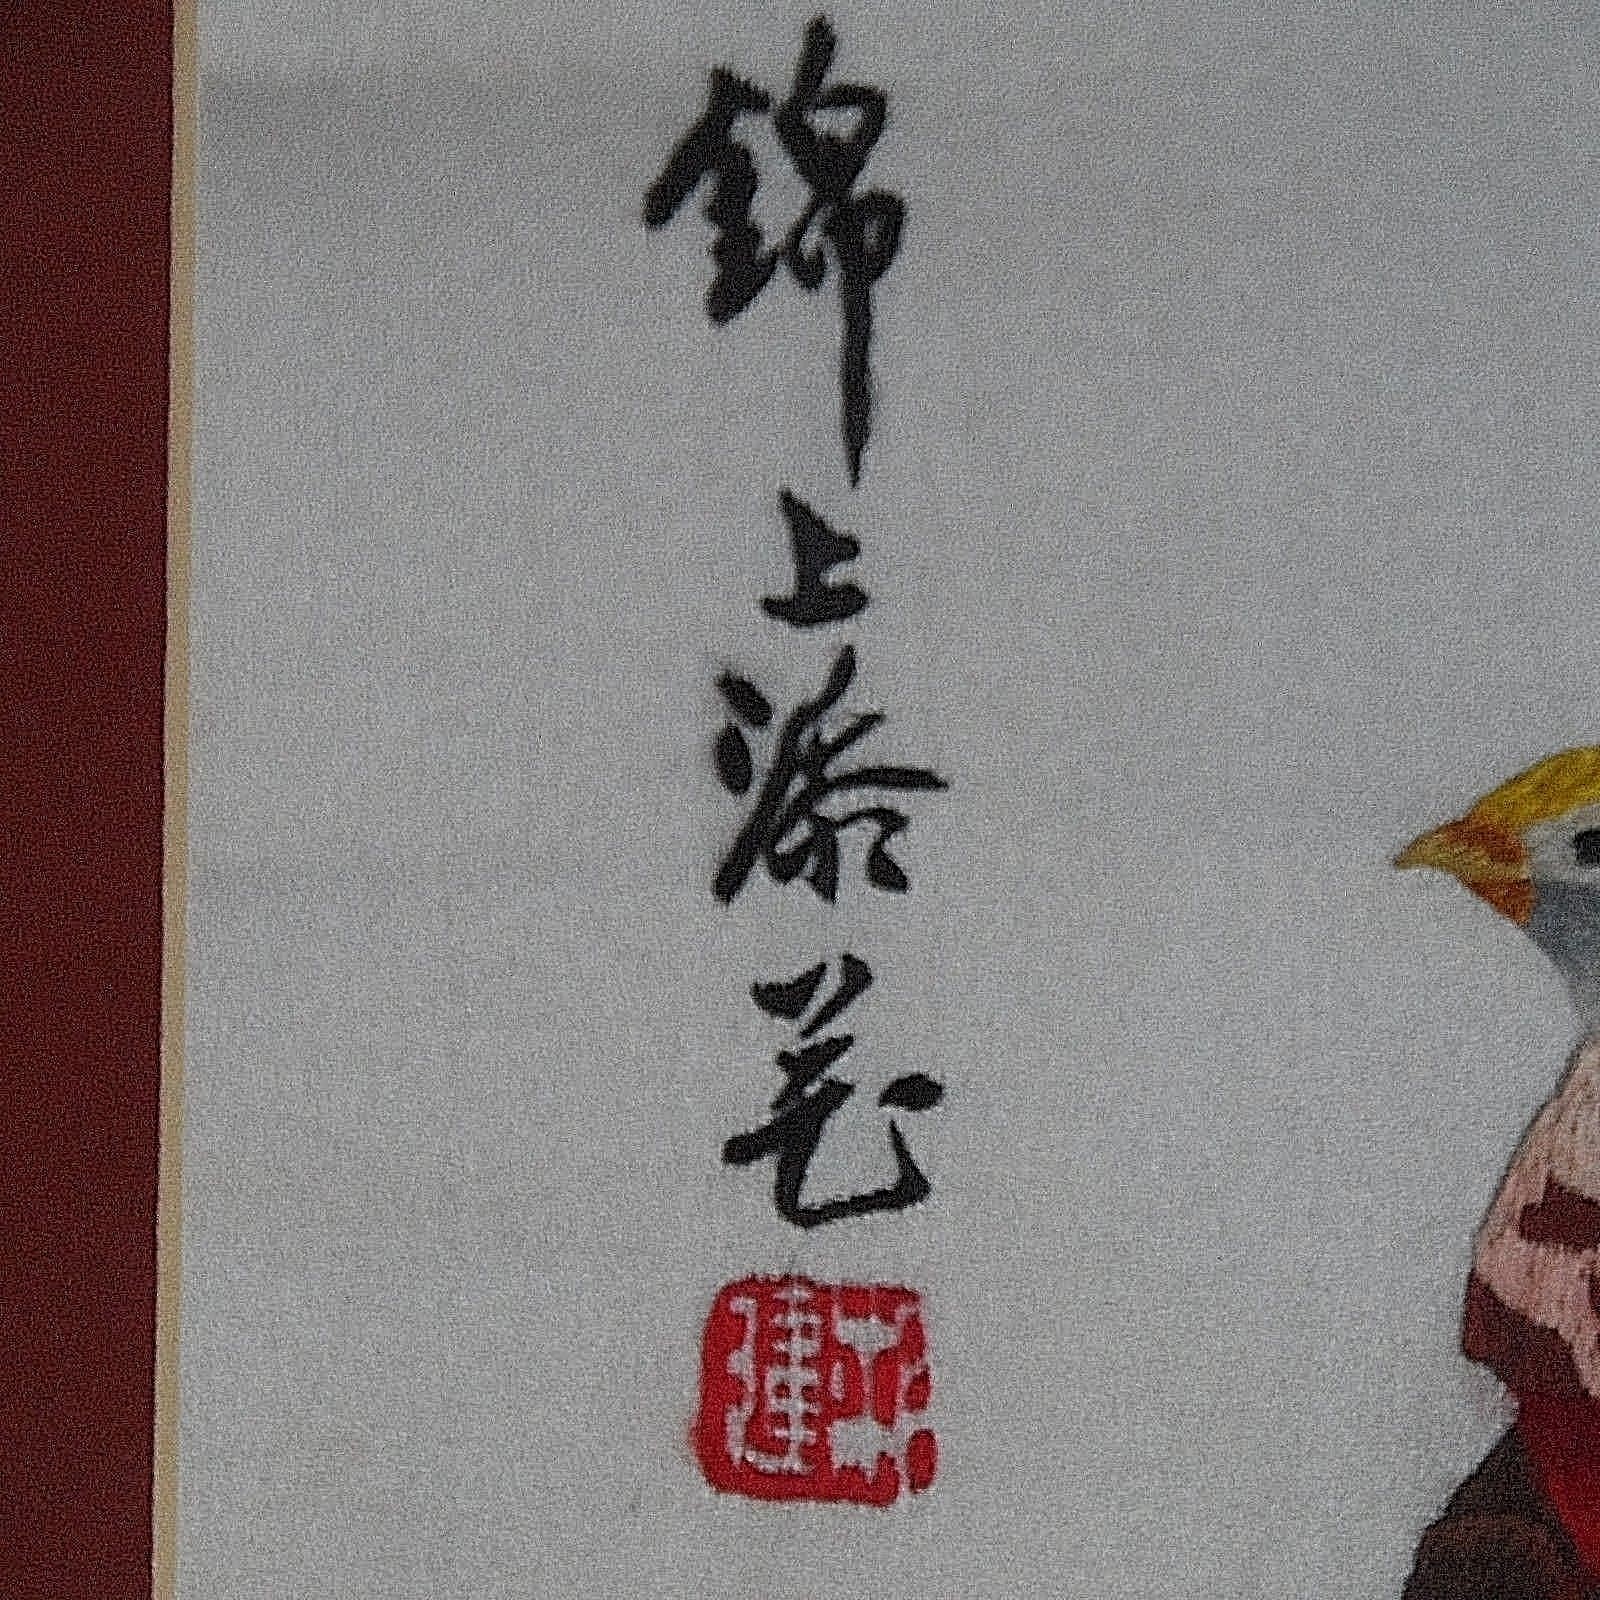 錦上添花